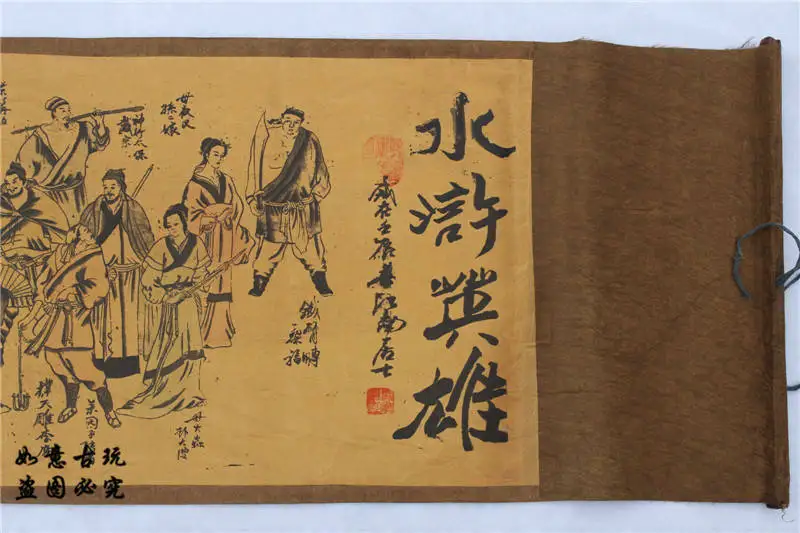 水滸英雄
歲在壬辰春江南居士
鐵臂膊
蔡福
母夜叉
孫二娘
神行太保
戴宗
母大蟲
顧大嫂
菜園子
撲天雕李應
如意古玩
盗图必究